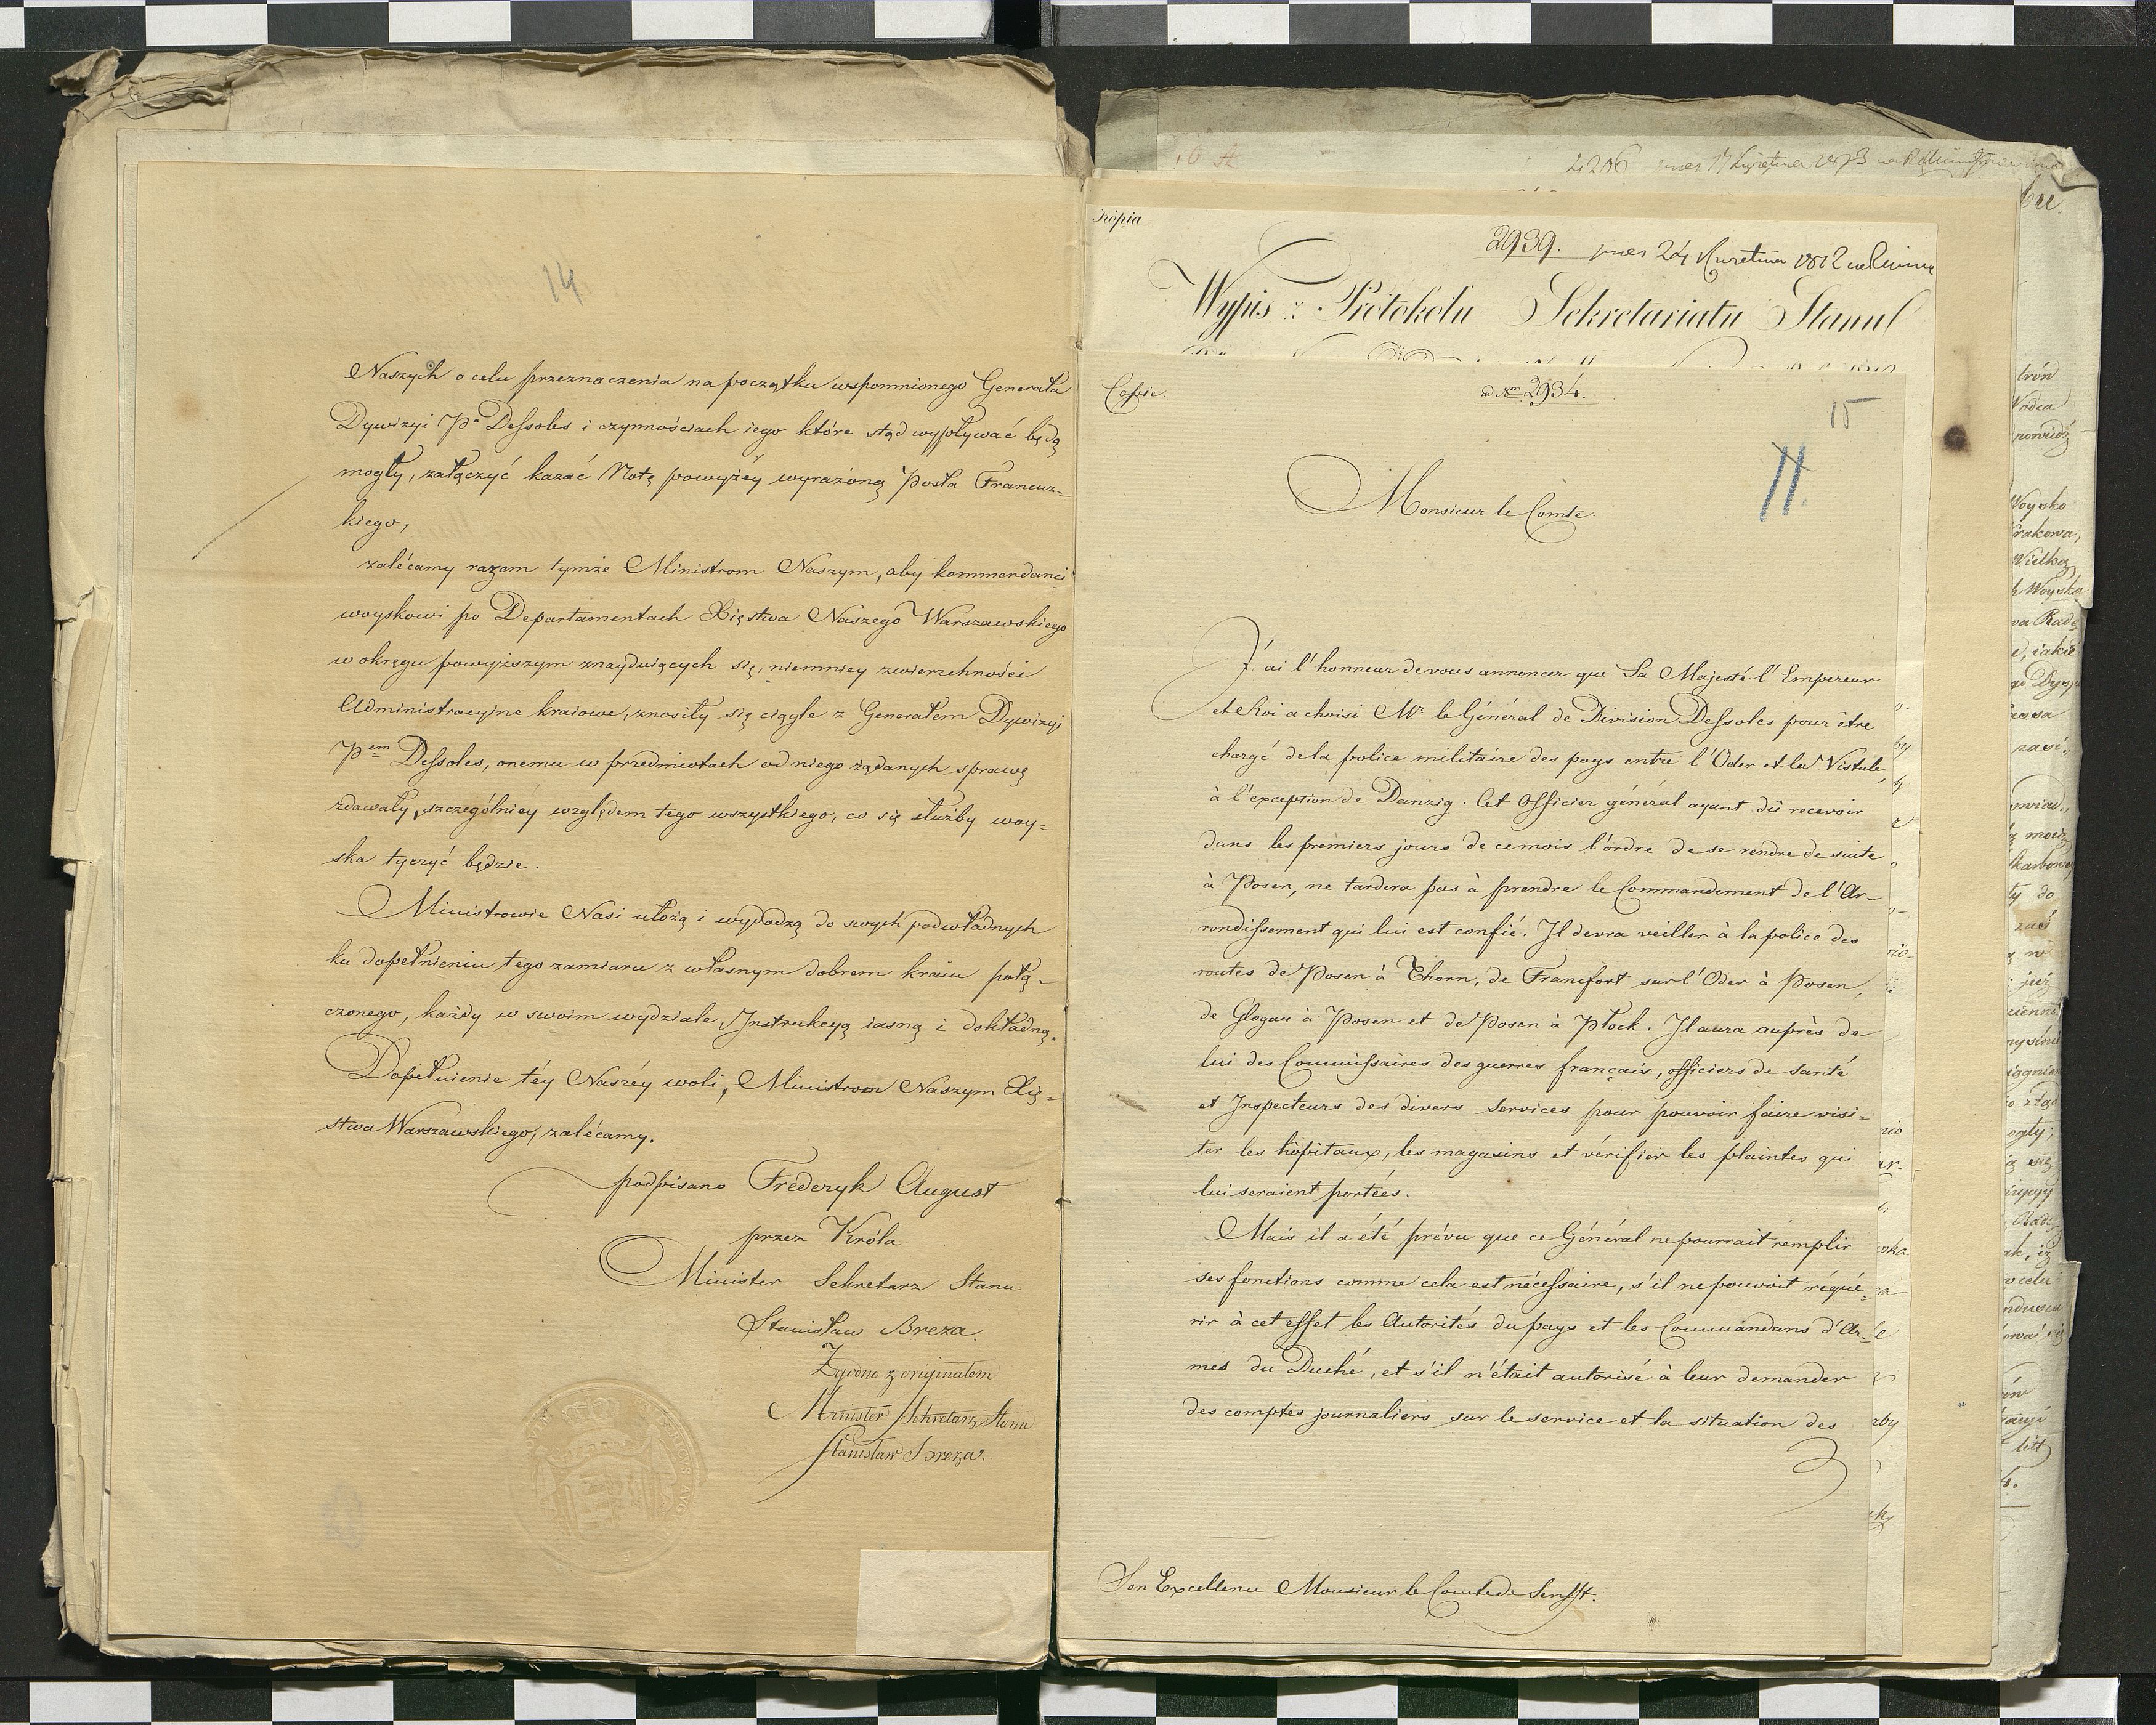 14
Naszych o celu przeznaczenia na początku wspomnionego Generała
Dywizyi Pa Dessoles i czynnościach iego które stąd wypływać będą
mogły, załączyć kazać Notę powyżéy wyrażoną Posła Francuz=
kiego,
zalécamy razem tymże Ministrom Naszym, aby kommendanci
woyskowi po Departamentach Xięstwa Naszego Warszawskiego
w okręgu powyższym znayduiących się, niemniey zwierzchności
Administracyjne kraiowe, znosiły się ciągle z Generałem Dywizyi
Pem Dessoles, onemu w przedmiotach od niego żądanych sprawę
zdawały, szczególniéy względem tego wszystkiego, co się służby woy=
ska tyczyć będzie.
Ministrowie Nasi ułożą i wydadzą do swych podwładnych
ku dopełnieniu tego zamiaru z własnym dobrem kraiu połą-
czonego, każdy w swoim wydziale, Instrukcyą iasną i dokładną.
Dopełnienie téy Naszéy woli, Ministrom Naszym Xię=
stwa Warszawskiego, zalécamy.
podpisano Fréderyk August
przez Króla
Minister Sekretarz Stanu
Stanisław Breza.
Zgodno z originałem
Minister Sekretarz Stanu
Stanisław Breza.
4206
Kopia
2939. 24 Kwietnia 1812
Wypis z Protokołu Sekretariatu Stanu
Copie.
ad Num 2934.
15
Monsieur le Comte.
J'ai l'honneur de vous annoncer que Sa Majesté l'Empereur
et Roi a choisi Mr le Général de Division Dessoles pour être
chargé de la police militaire des pays entre l'Oder et la Vistule,
à l'exception de Danzig. Cet Officier général ayant dû recevoir
dans les premiers jours de ce mois l'ordre de se rendre de suite
à Posen, ne tardera pas à prendre le Commandement de l'Ar-
rondissement qui lui est confié. Il devra veiller à la police des
routes de Posen à Thorn, de Francfort sur l'Oder à Posen,
de Glogau à Posen et de Posen à Płock. Il aura auprès de
lui des Commissaires des guerres français, officiers de santé
et Inspecteurs des divers services pour pouvoir faire visi=
ter les hôpitaux, les magasins et vérifier les plaintes qui
lui seraient portées.
Mais il a été prévu que ce Général ne pourrait remplir
ses fonctions comme cela est nécessaire, s'il ne pouvoit réqué-
rir à cet effet les Autorités du pays et les Commandans d'Ar-
mes du Duché, et s'il n'était autorisé à leur demander
des comptes journaliers sur le service et la situation des
Son Excellence Monsieur le Comte de Senfft.